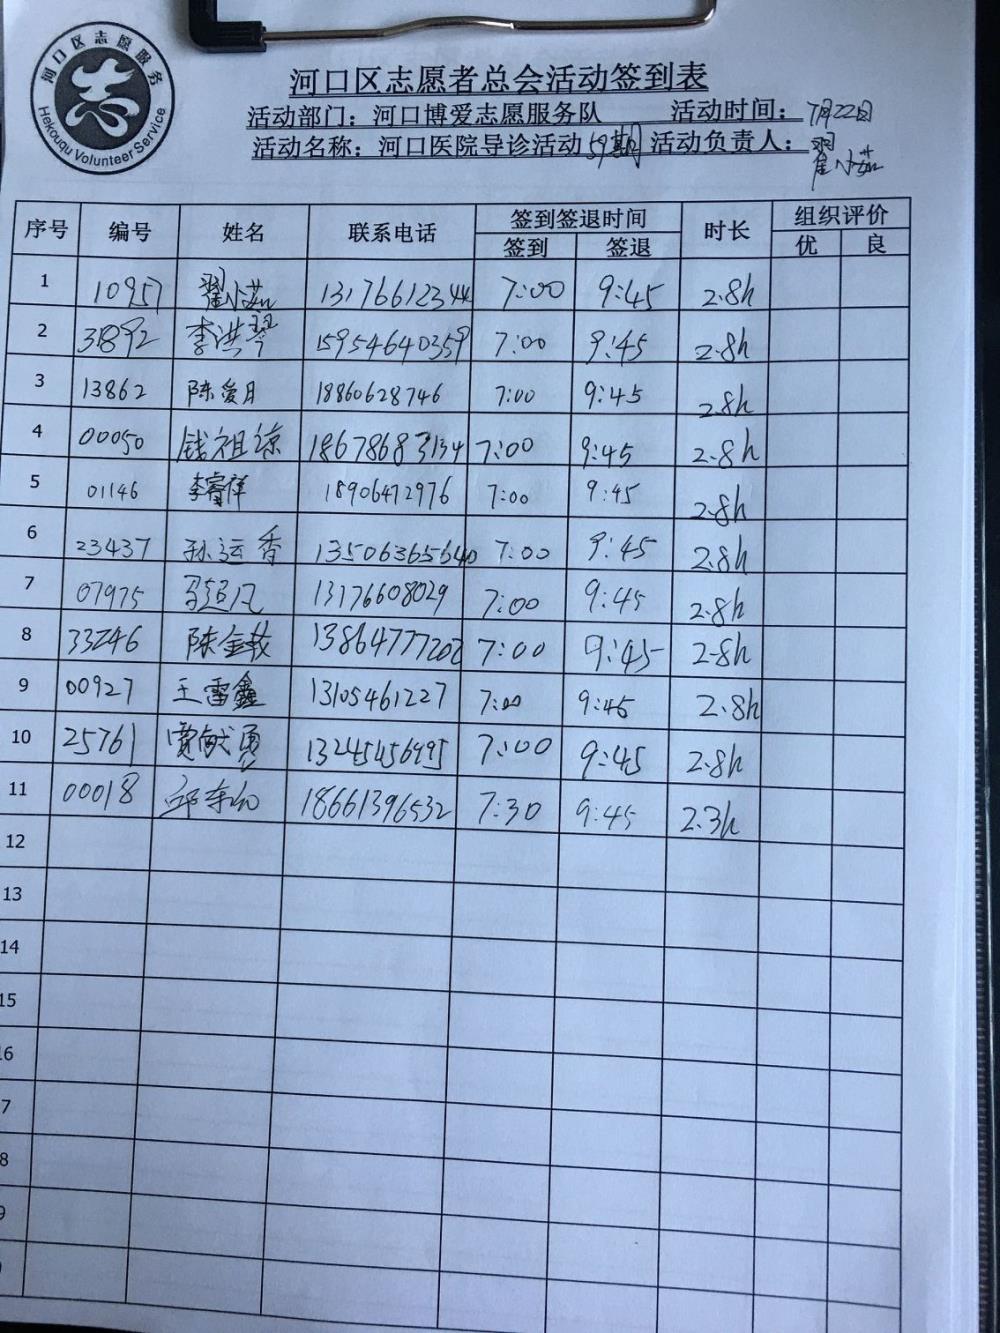 河口区志愿服务
Hekouqu Volunteer Service
河口区志愿者总会活动签到表
活动部门：河口博爱志愿服务队 活动时间：7月22日
活动名称：河口医院导诊活动59期 活动负责人：翟小茹
序号 编号 姓名 联系电话 签到签退时间 时长 组织评价
签到 签退 优 良
1 10957 翟小茹 13176612344 7:00 9:45 2.8h
2 31892 李洪琴 15954640359 7:00 9:45 2.8h
3 13862 陈爱月 18860628746 7:00 9:45 2.8h
4 00050 钱祖琼 18678683134 7:00 9:45 2.8h
5 01146 李睿祥 18906472976 7:00 9:45 2.8h
6 23437 孙运香 13506365640 7:00 9:45 2.8h
7 07975 马超凡 13176608029 7:00 9:45 2.8h
8 33246 陈金枝 13864777202 7:00 9:45 2.8h
9 00927 王雷鑫 13105461227 7:00 9:45 2.8h
10 25761 贾献勇 7:00 9:45 2.8h
11 00018 18661396532 7:30 9:45 2.3h
12
13
14
15
16
7
8
9